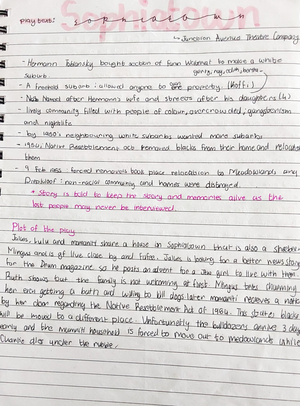 Sophiatown
play text: Sophiatown
↳ Junction Avenue Theatre Company
- Hermann Tobiansky bought section of Farm Waterval to make a white
suburb
- A freehold suburb : allowed anyone to own property. (Koffi)
- Named after Hermann's wife and streets after his daughters (4)
- lively community filled with people of colour, overcrowded, gangsterism
and nightlife
- by 1950's neighbouring white suburbs wanted more suburbs
- 1954, Native Resettlement act removed blacks from their home and relocate
them
- 9 Feb 1955 forced removals took place relocation to Meadowlands and
Diepkloof : non-racial community and homes were destroyed
* Story is told to keep the story and memories alive as the
last people may never be interviewed.
Plot of the play
Jakes, Lulu and mamariti share a house in Sophiatown that is also a shebeen
Mingus and his gf live close by and Fafee. Jakes is looking for a better news story
for the Drum magazine. So he posts an advert for a Jew girl to live with them.
Ruth shows but the family is not welcoming at first Mingus tries charming
her even getting a bath and willing to kill dogs. later mamariti receives a notice
by her door regarding the Native Resettlement Act of 1954. This states blacks
will be moved to a different place. Unfortunately the bulldozers arrive 3 days
early and the mamariti household is forced to move out to meadowlands while
Charlie dies under the rubble.